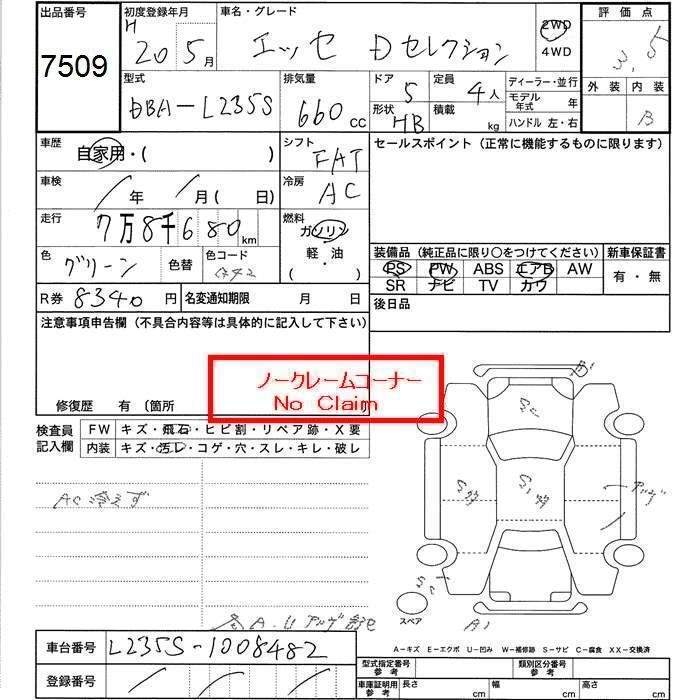 出品番号 初度登録年月 車名・グレード 2WD 評価点
7509 H 20 5月 エッセ Dセレクション 4WD 3.5
型式 排気量 ドア 定員 ディーラー・並行 外装 内装
DBA-L235S 660cc 5 4人 モデル年式 年
形状 積載 ハンドル 左・右 B
HB kg
車歴 自家用・( ) シフト FAT セールスポイント (正常に機能するものに限ります)
車検 年 月 ( 日) 冷房 AC
走行 7万8千680km 燃料 ガソリン
色 グリーン 色替 色コード 軽・油 ( ・ )
装備品 (純正品に限り○をつけてください) 新車保証書
PS PW ABS エアB AW 有・無
SR ナビ TV カワ
R券 8340円 名変通知期限 月 日 後日品
注意事項申告欄 (不具合内容等は具体的に記入して下さい)
ノークレームコーナー
No Claim
修復歴 有 〔箇所
検査員記入欄 FW キズ・飛石・ヒビ割・リペア跡・X要
内装 キズ・汚レ・コゲ・穴・スレ・キレ・破レ
AC冷えず
スペア
A1
A-キズ E-エクボ U-凹み W-補修跡 S-サビ C-腐食 XX-交換済
車台番号 L235S-1008482
型式指定番号 参考 類別区分番号 参考
登録番号
車庫証明用 参考 長さ cm 幅 cm 高さ cm